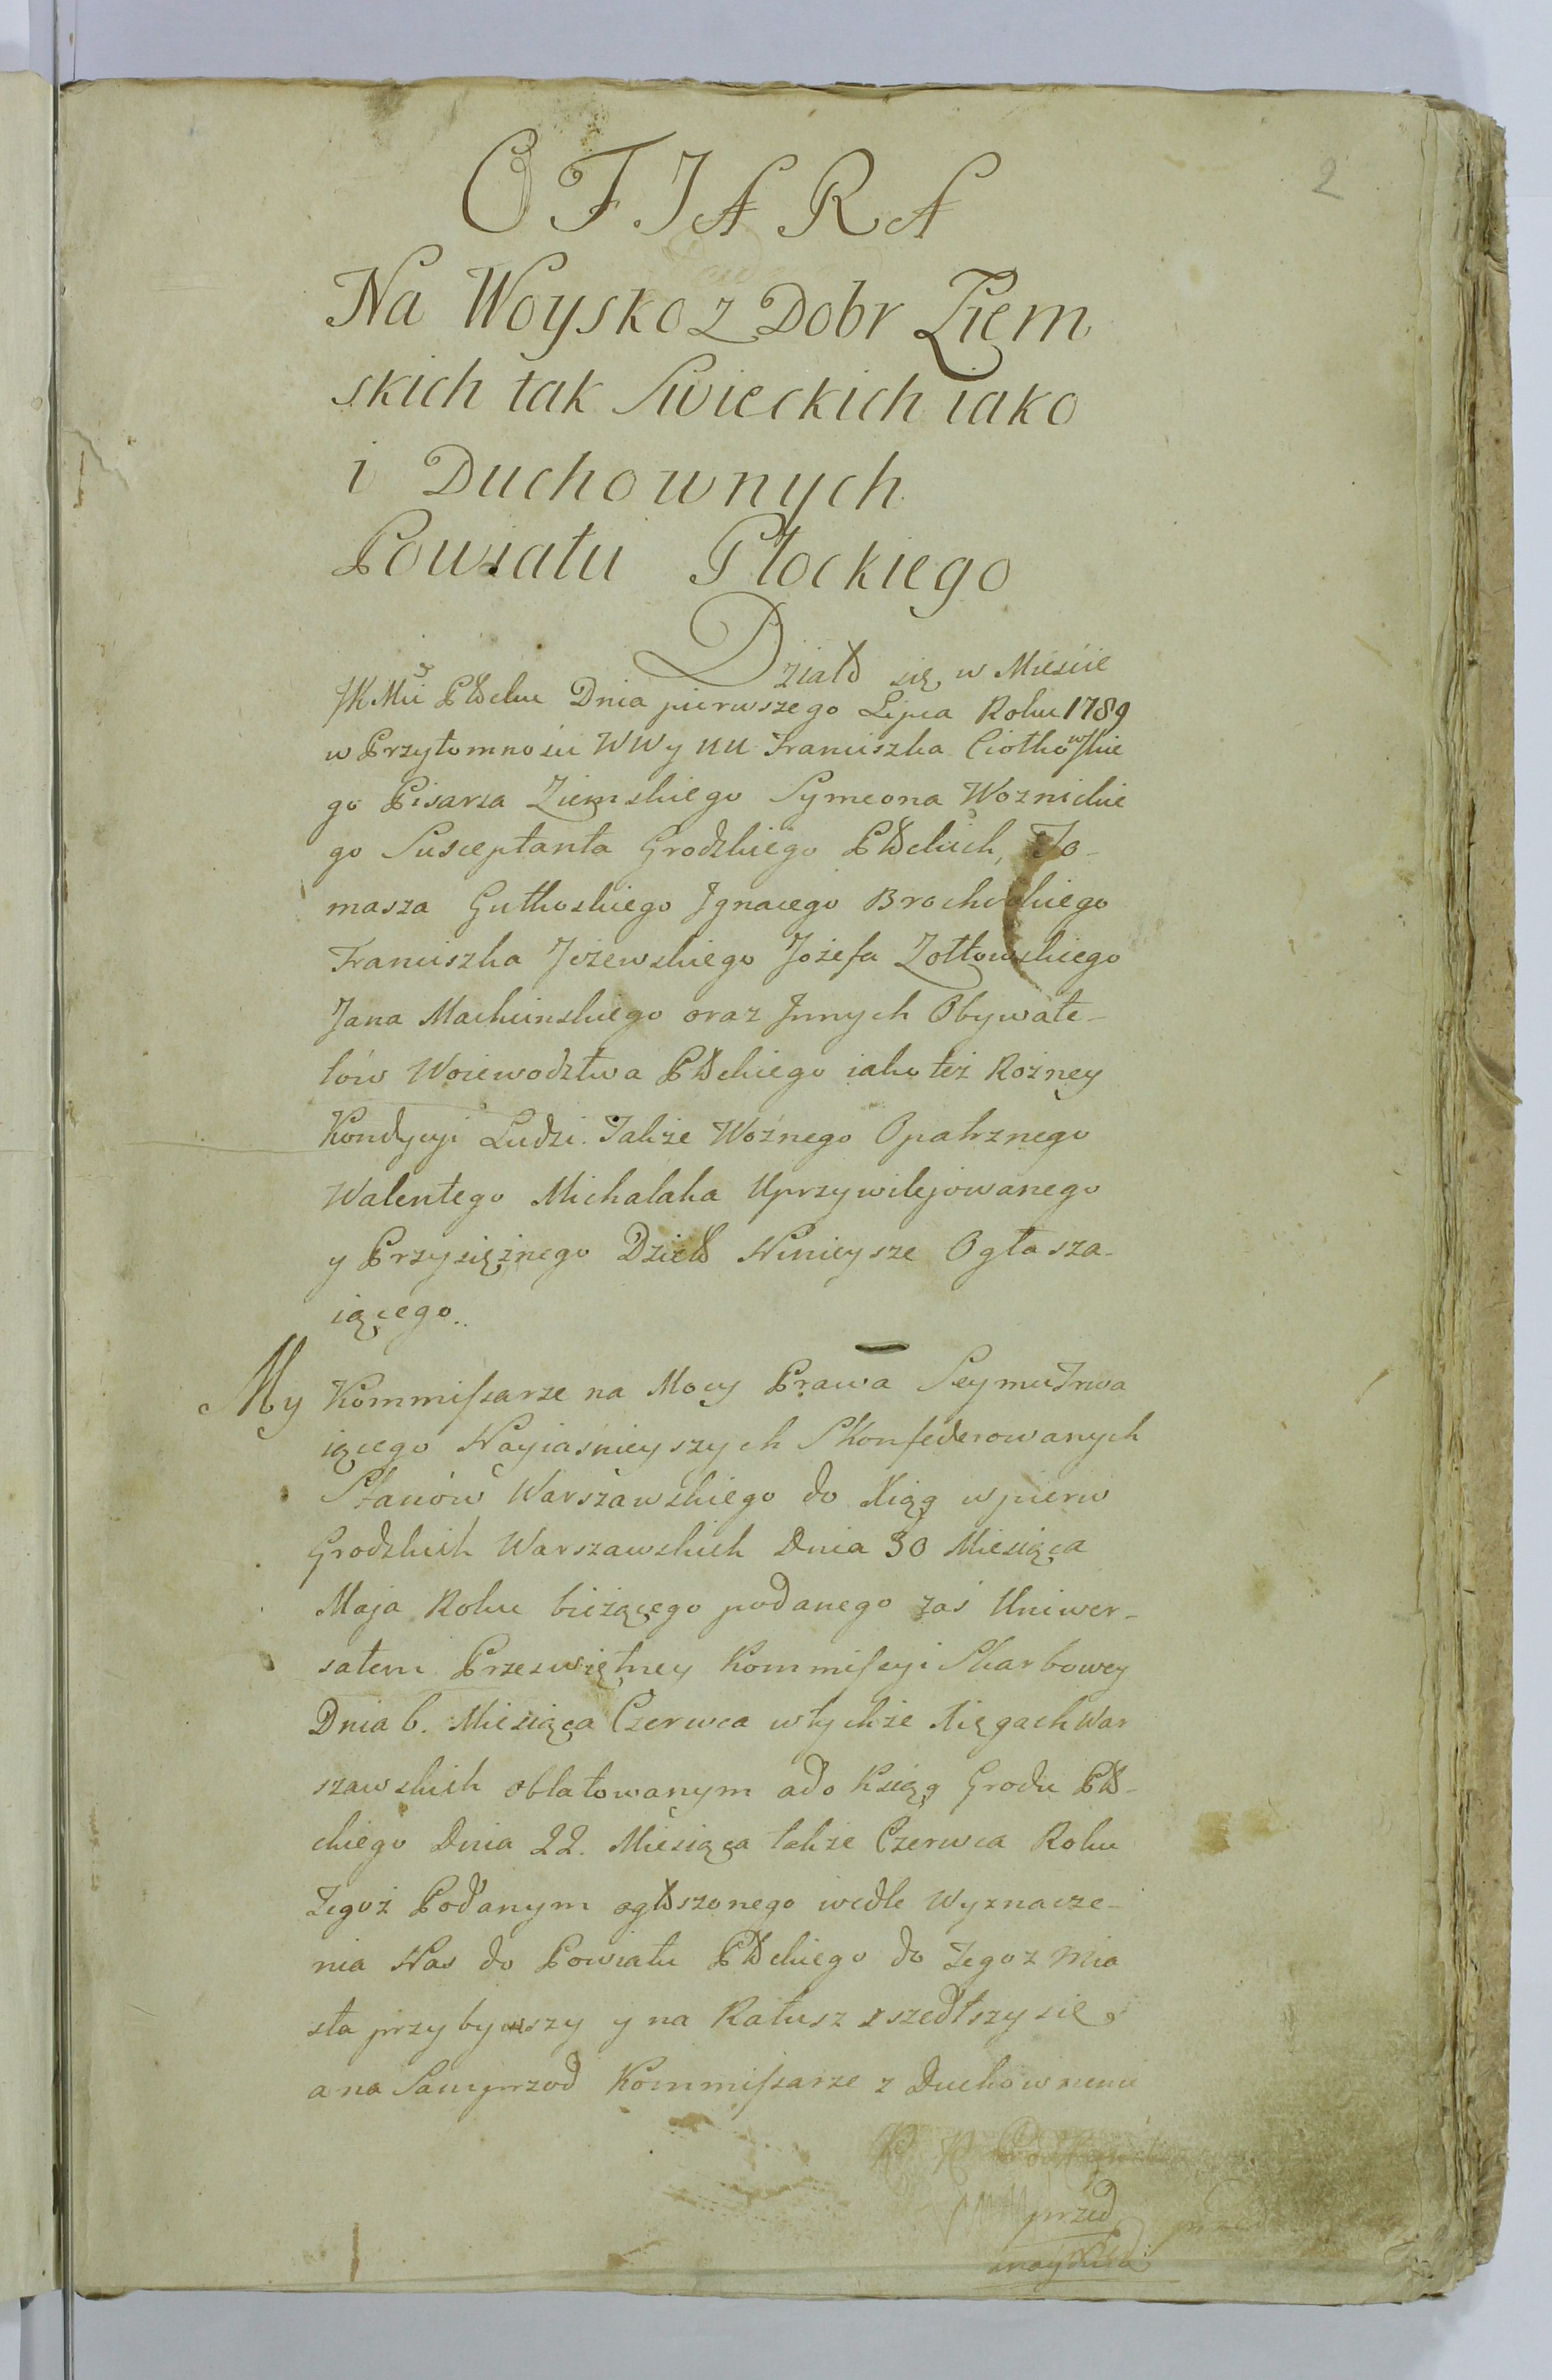 2
OFIARA
Na Woysko z Dobr Ziem
skich tak Swieckich iako
i Duchownych
Powiatu Płockiego
Działo się w Mieście
JKMci Płocku Dnia pierwszego Lipca Roku 1789
w Przytomności WWy UU Franciszka Ciołkowskie
go Pisarza Ziemskiego Symeona Woznickie
go Susceptanta Grodzkiego Płockich, To-
masza Gutkoskiego Ignacego Brochockiego
Franciszka Jeżewskiego Jozefa Zołtowskiego
Jana Machcinskiego oraz Innych Obywate-
lów Woiewodztwa Płockiego iako też Rożney
Kondycyi Ludzi. Takze Woźnego Opatrznego
Walentego Michalaka Uprzywilejowanego
y Przysiężnego Dzieło Ninieysze Ogłasza-
iącego..
My Kommissarze na Mocy Prawa Seymu Trwa
iącego Nayiasnieyszych Skonfederowanych
Stanów Warszawskiego do Xiąg wpierw
Grodzkich Warszawskich Dnia 30 Miesiąca
Maja Roku bieżącego podanego zaś Uniwer-
sałem Prześwietney Kommissyi Skarbowey
Dnia 6. Miesiąca Czerwca w tychże Xięgach War
szawskich oblatowanym a do Ksiąg Grodu Pło-
ckiego Dnia 22. Miesiąca także Czerwca Roku
Tegoż Podanym ogłoszonego wedle Wyznacze-
nia Nas do Powiatu Płockiego do Tegoz Mia
sta przybywszy y na Ratusz zszedłszy się
a na Samprzod Kommissarze z Duchownemi
przed